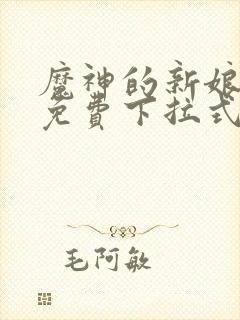 魔神的新娘
免費下拉式
毛阿敏